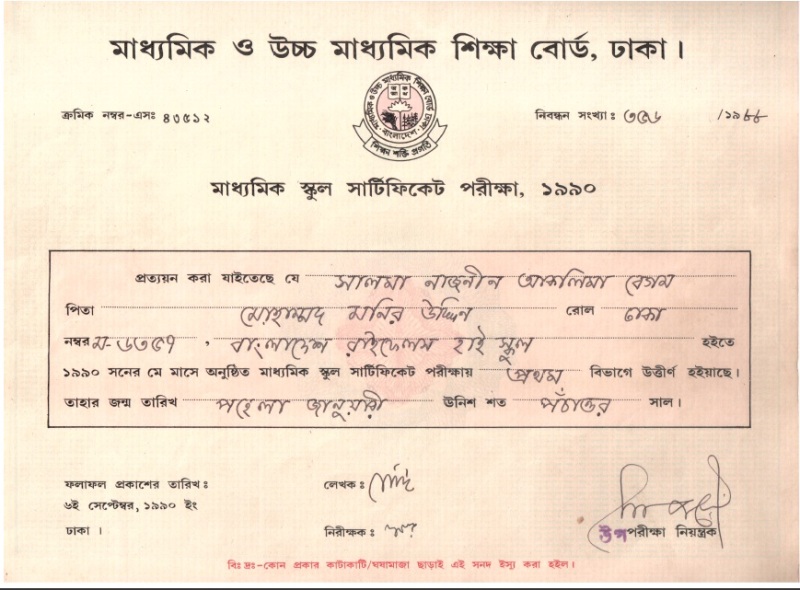 মাধ্যমিক ও উচ্চ মাধ্যমিক শিক্ষা বোর্ড, ঢাকা।
ক্রমিক নম্বর-এসঃ ৪৩৫১২ নিবন্ধন সংখ্যাঃ ৩৫৬ /১৯৮৮
শিক্ষা শক্তি প্রগতি
মাধ্যমিক স্কুল সার্টিফিকেট পরীক্ষা, ১৯৯০
প্রত্যয়ন করা যাইতেছে যে সালমা নাজনীন আকলিমা বেগম
পিতা মোহাম্মদ মনির উদ্দিন রোল ঢাকা
নম্বর ম-৬৩৫৭, বাংলাদেশ রাইফেলস হাই স্কুল হইতে
১৯৯০ সনের মে মাসে অনুষ্ঠিত মাধ্যমিক স্কুল সার্টিফিকেট পরীক্ষায় প্রথম বিভাগে উত্তীর্ণ হইয়াছে।
তাহার জন্ম তারিখ পহেলা জানুয়ারী উনিশ শত পঁচাত্তর সাল।
ফলাফল প্রকাশের তারিখঃ লেখকঃ
৬ই সেপ্টেম্বর, ১৯৯০ ইং
ঢাকা। নিরীক্ষকঃ উপপরীক্ষা নিয়ন্ত্রক
বিঃ দ্রঃ-কোন প্রকার কাটাকাটি/ঘষামাজা ছাড়াই এই সনদ ইস্যু করা হইল।